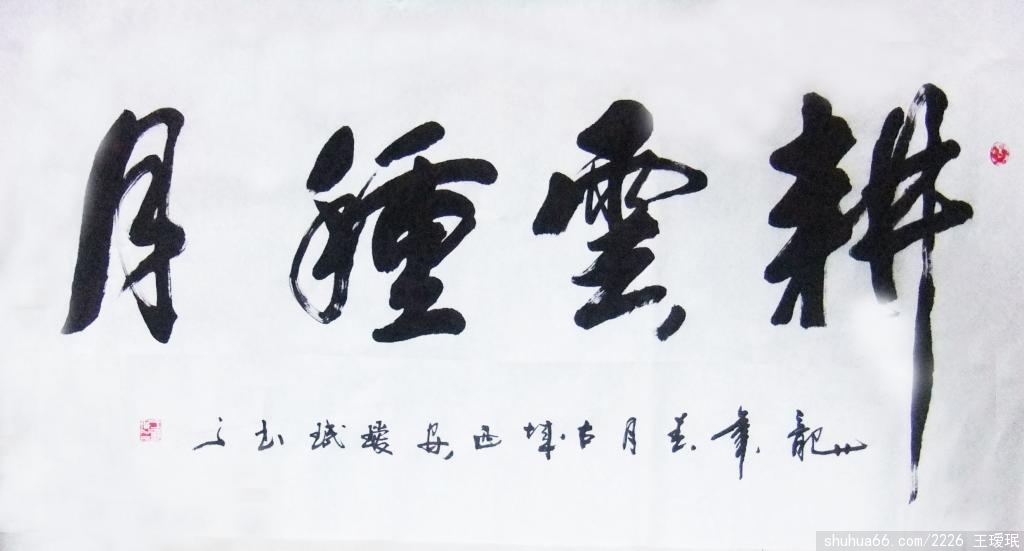 耕雲種月
龍年春月古城西安瑷珉书于
shuhua66.com/2226 王瑷珉